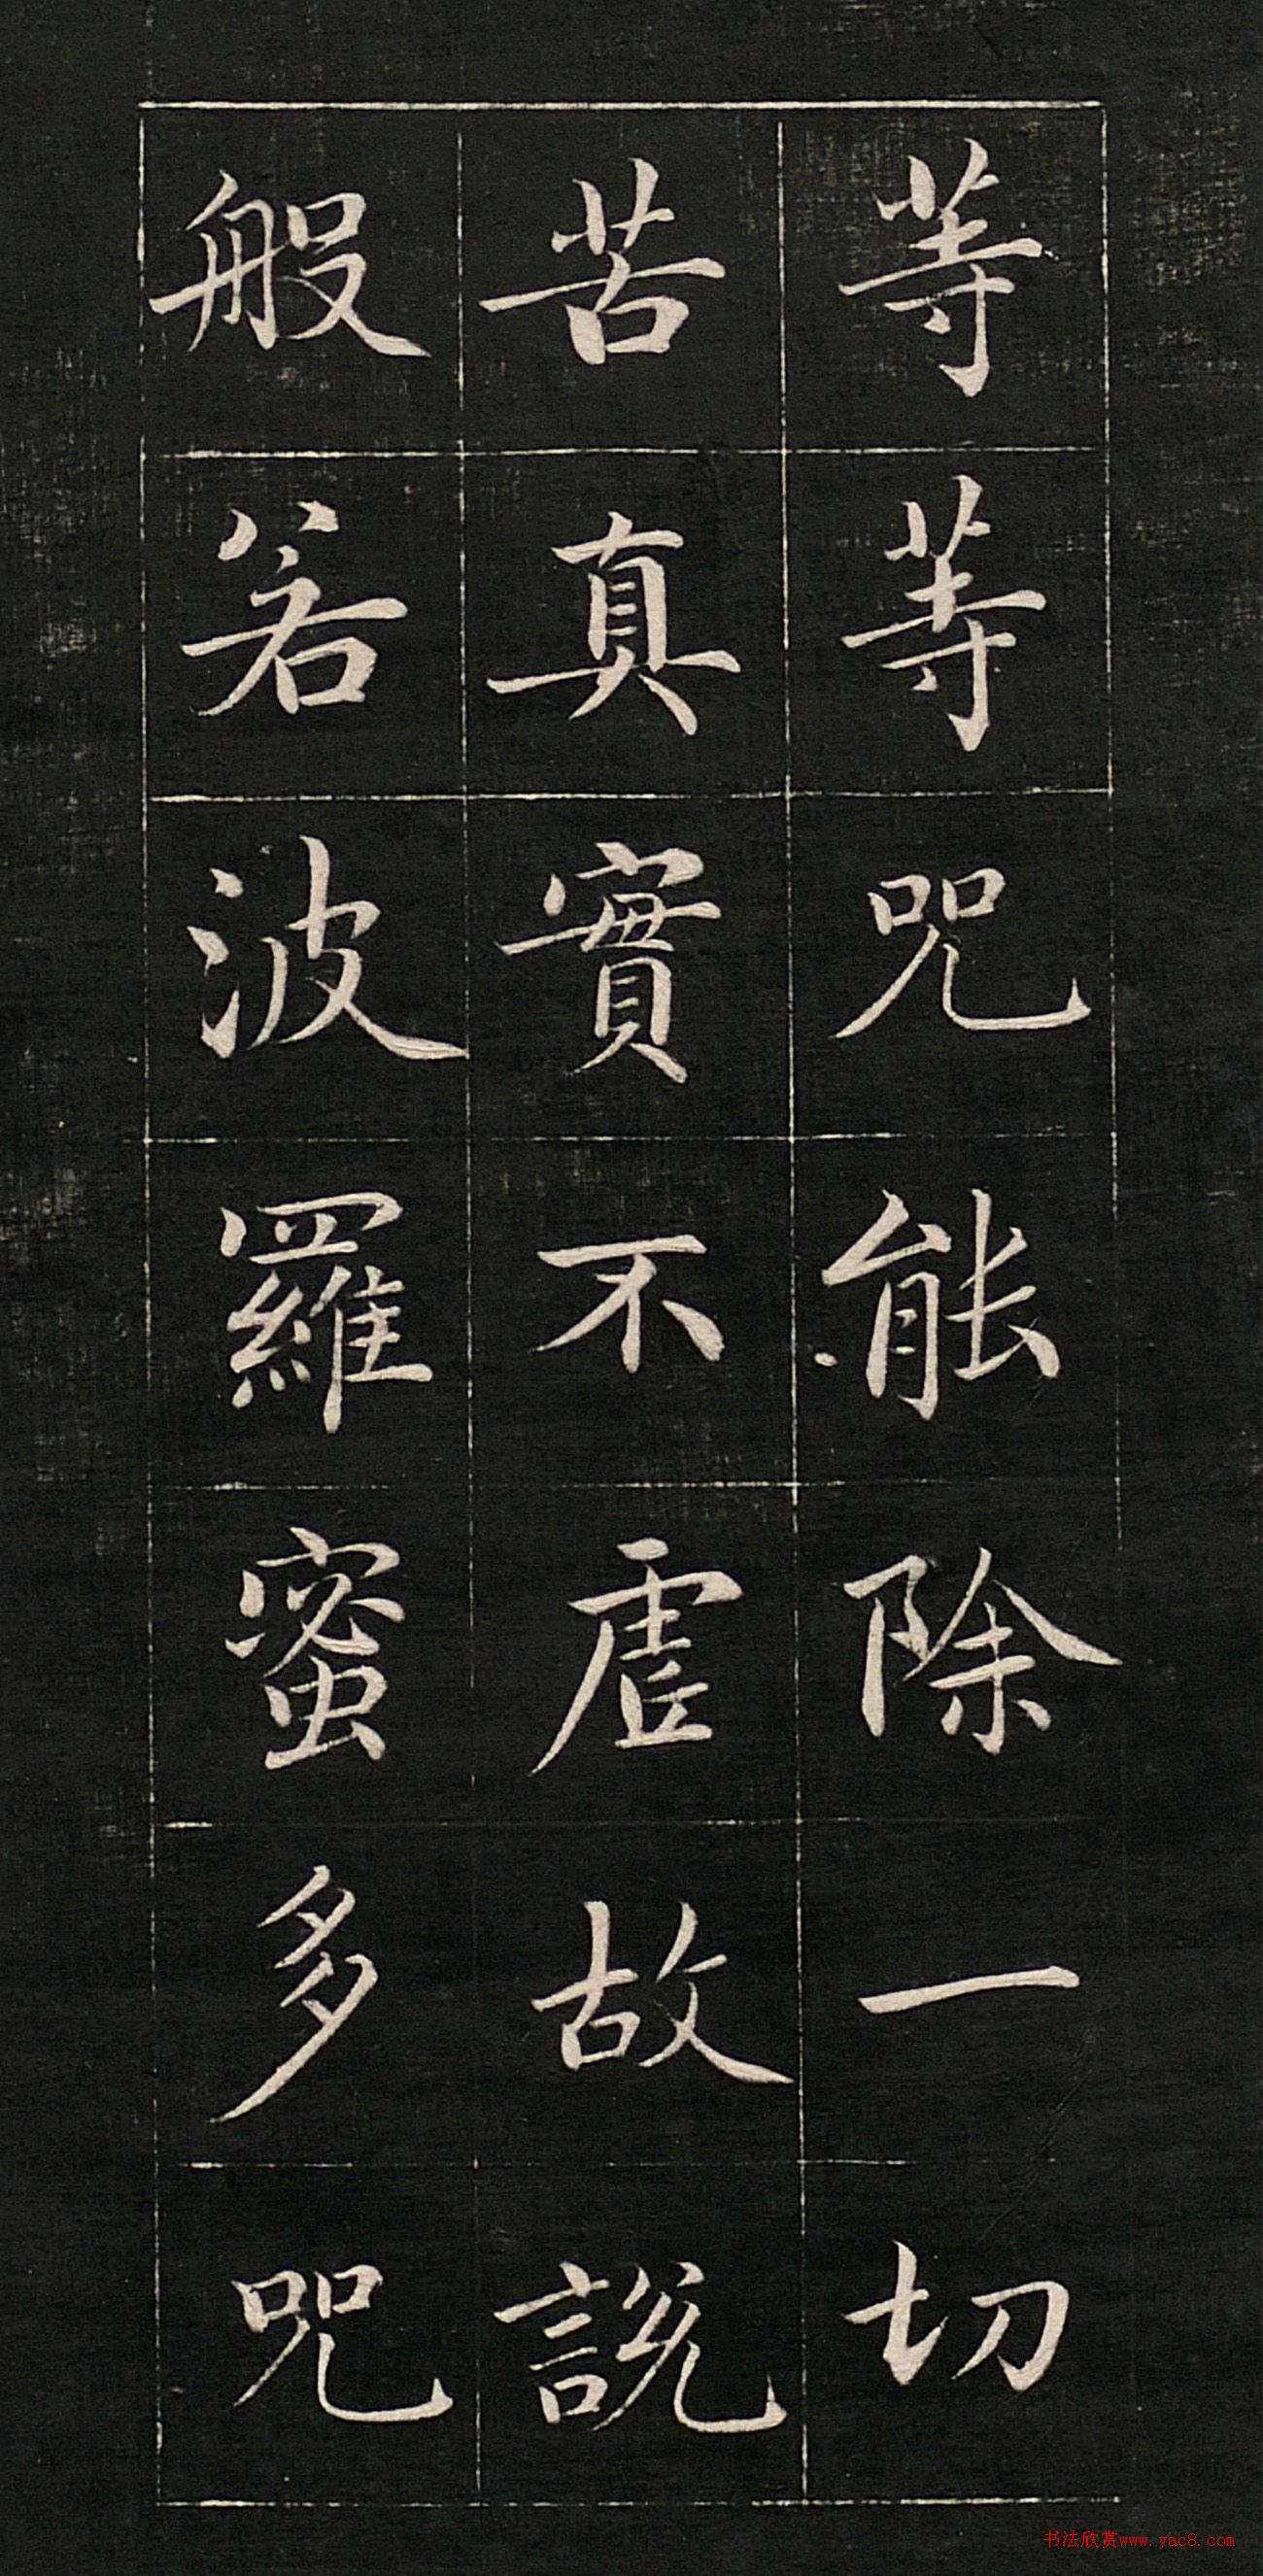 等等咒能除一切
苦真實不虛故說
般若波羅蜜多咒
书法欣赏www.yac8.com